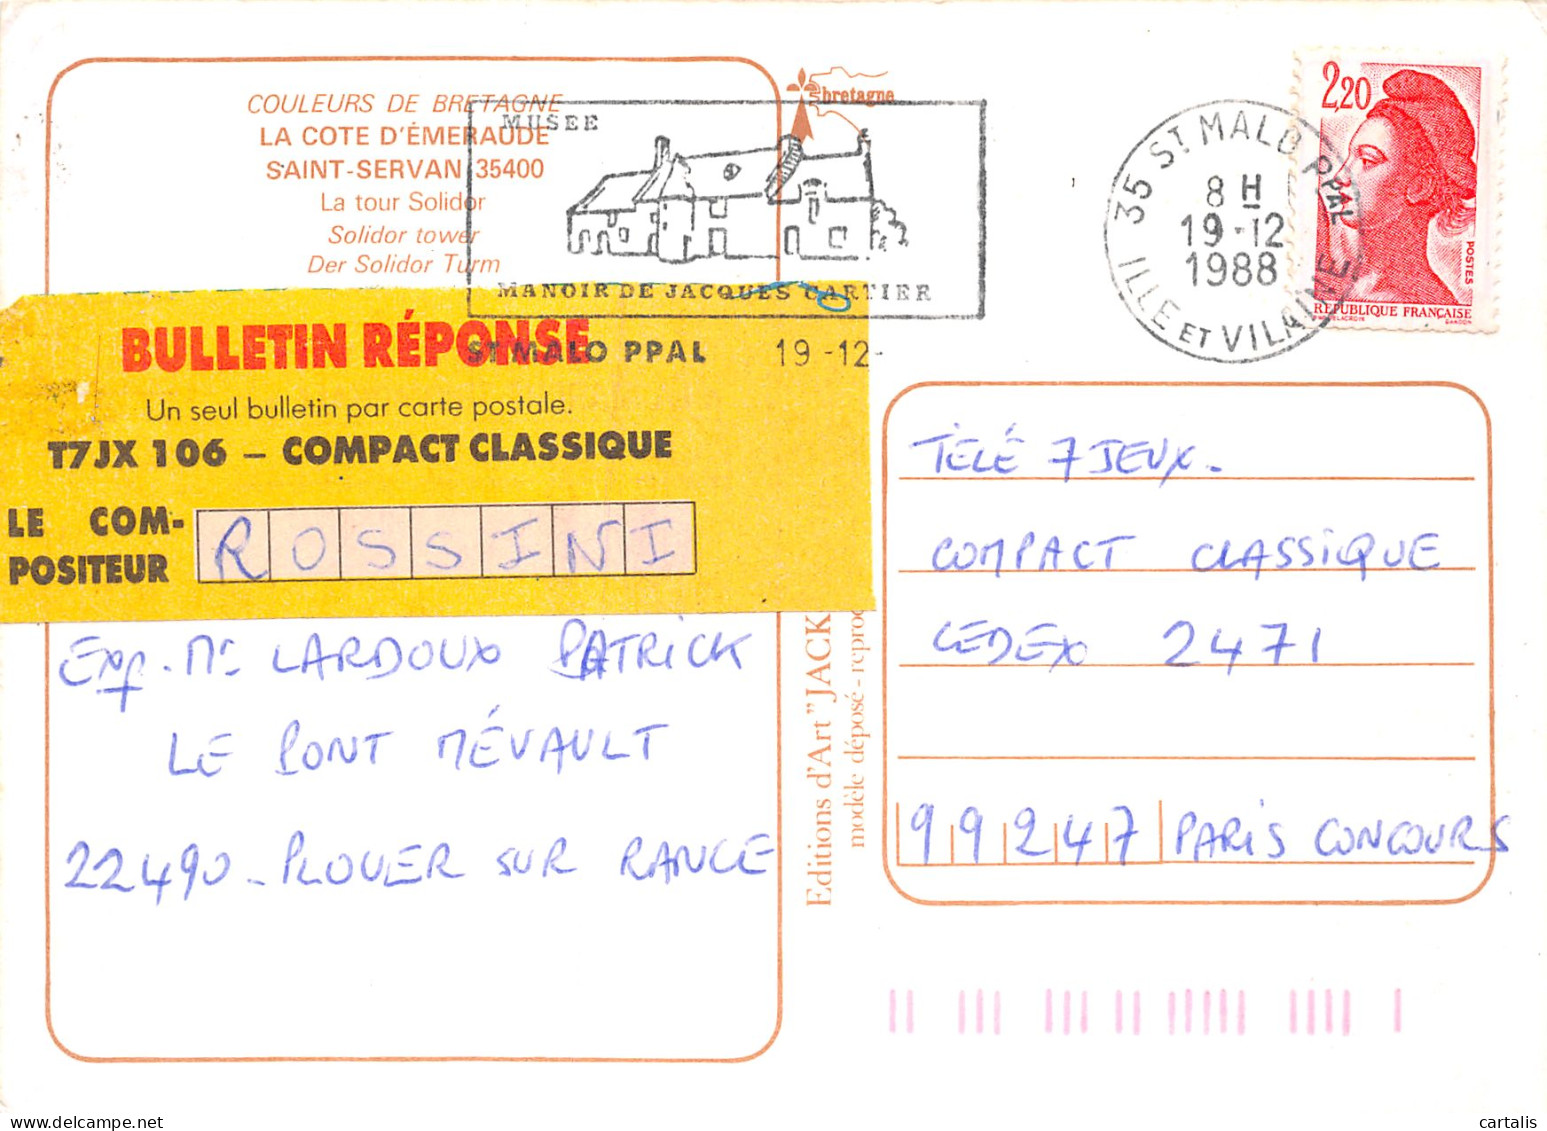 COULEURS DE BRETAGNE
LA COTE D'ÉMERAUDE
SAINT-SERVAN 35400
La tour Solidor
Solidor tower
Der Solidor Turm
bretagne
MUSEE
MANOIR DE JACQUES CARTIER
ST MALO PPAL 19 -12-
35 ST MALO PPAL
8 H
19-12
1988
ILLE ET VILAINE
2,20
POSTES
RÉPUBLIQUE FRANÇAISE
BULLETIN RÉPONSE
Un seul bulletin par carte postale.
T7JX 106 – COMPACT CLASSIQUE
LE COM-
POSITEUR
ROSSINI
Exp. Mr LARDOUX PATRICK
LE PONT MÉVAULT
22490 - PLOUER SUR RANCE
Editions d'Art "JACK
modèle déposé - reproc
TÉLÉ 7 JEUX.
COMPACT CLASSIQUE
CEDEX 2471
99247 PARIS CONCOURS
cartalis